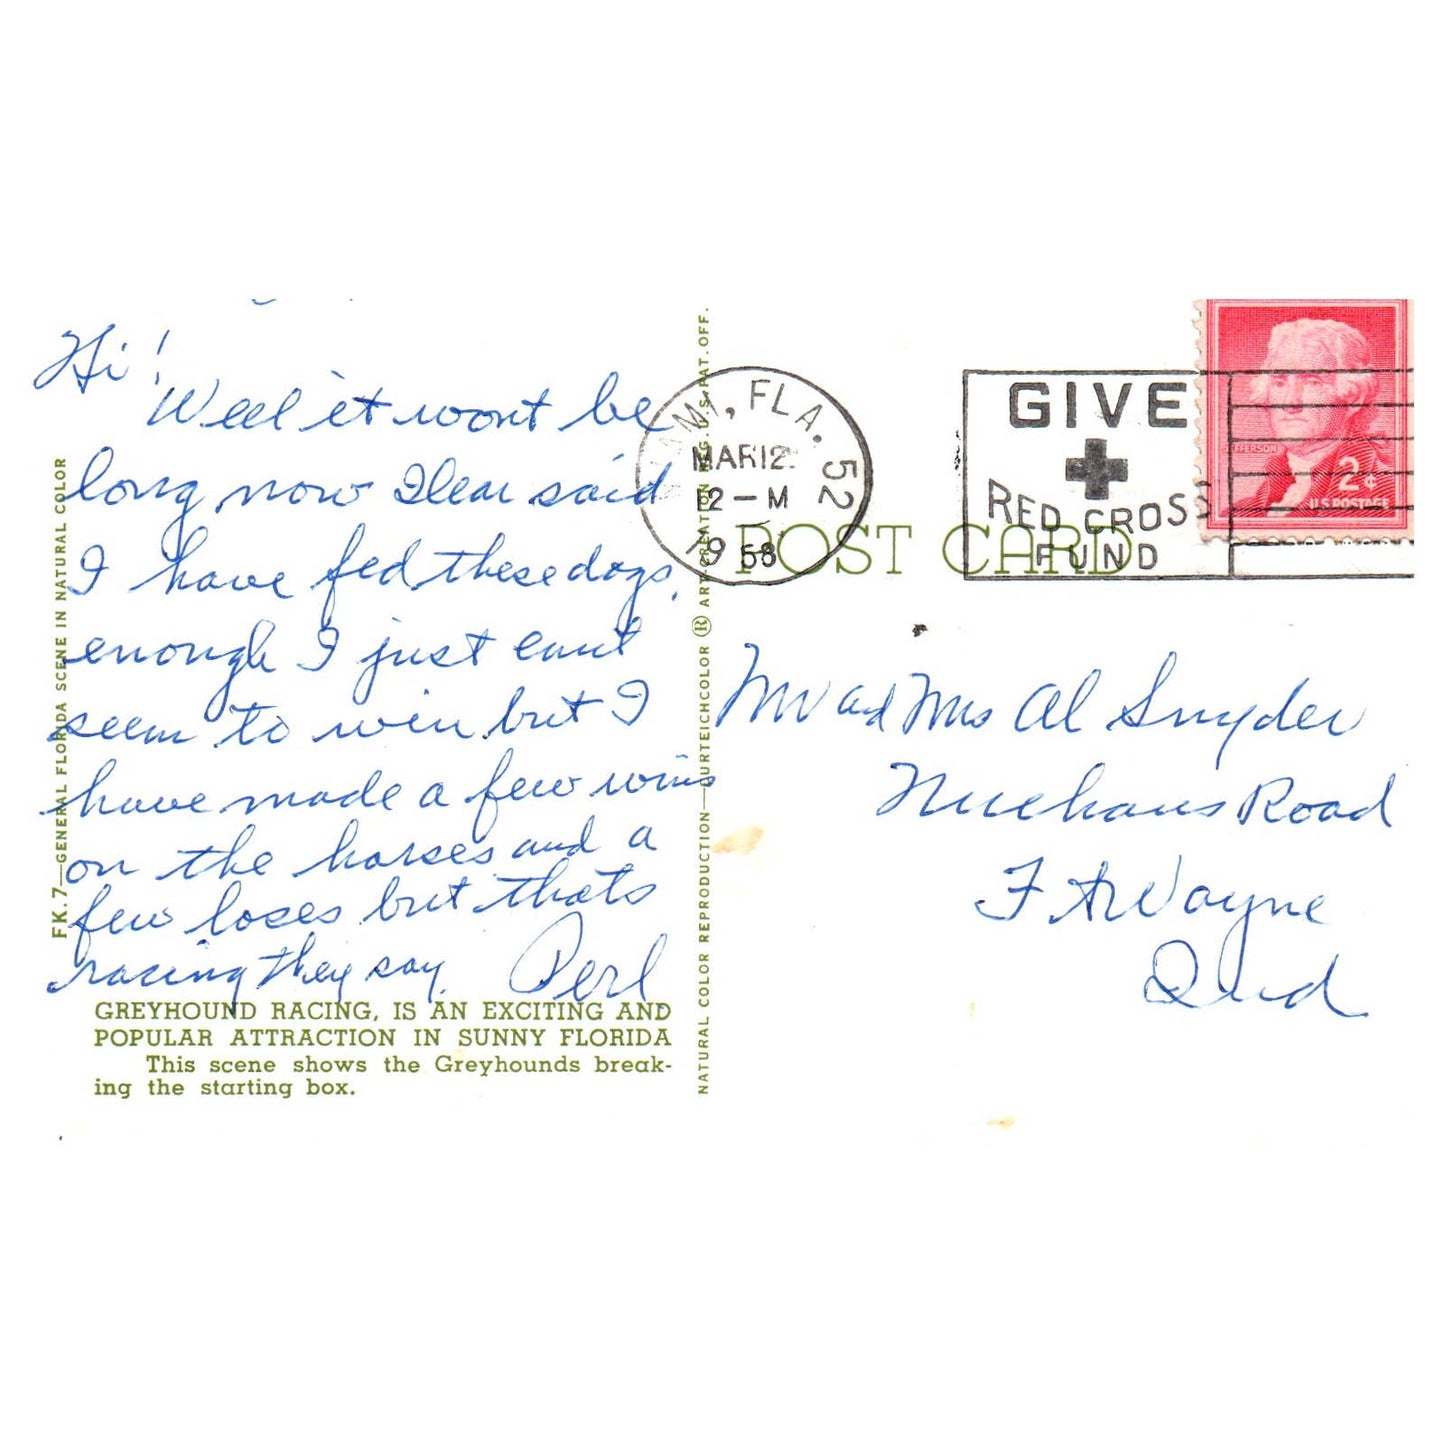 Hi!
Well it wont be
long now Glen said
I have fed these dogs.
enough I just cant
seem to win but I
have made a few wins
on the horses and a
few loses but thats
racing they say. Perl
GREYHOUND RACING, IS AN EXCITING AND
POPULAR ATTRACTION IN SUNNY FLORIDA
This scene shows the Greyhounds break-
ing the starting box.
FK. 7—GENERAL FLORIDA SCENE IN NATURAL COLOR
NATURAL COLOR REPRODUCTION—CURTEICHCOLOR ® ART-CREATION REG. U.S. PAT. OFF.
MIAMI, FLA. 52
MAR 12
12 - M
1958
GIVE
RED CROSS
FUND
JEFFERSON
2¢
U.S. POSTAGE
POST CARD
Mr and Mrs Al Snyder
Road
Ft Wayne
Ind